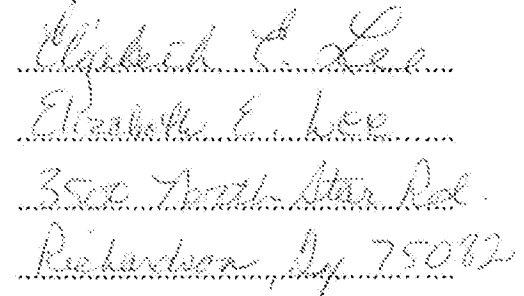 Elizabeth E. Lee
Elizabeth E. Lee
3500 North Star Rd.
Richardson, Tx 75082